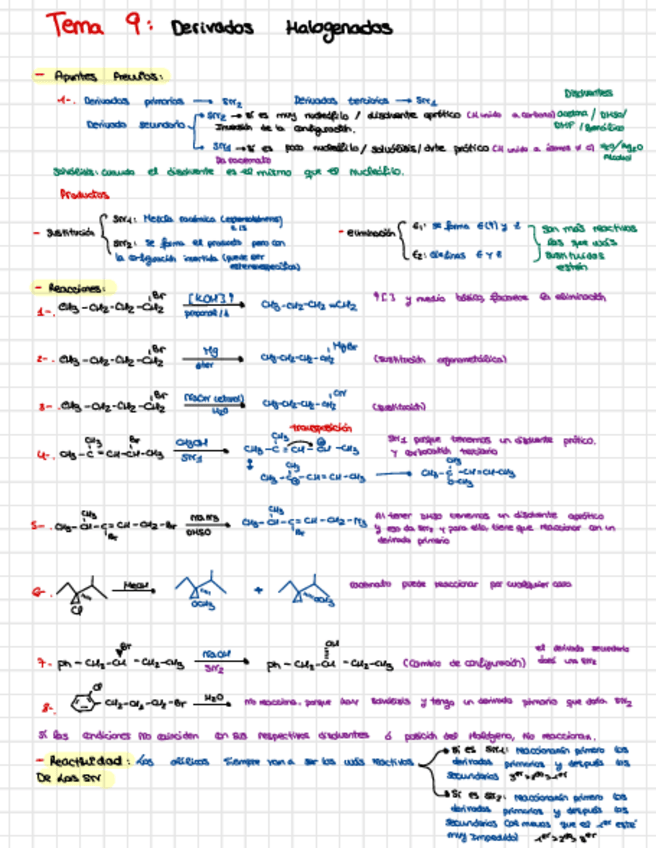 Tema 9: Derivados Halogenados
- Apuntes Previos:
1-. Derivados primarios → SN2 Derivados terciarios → SN1
Disolventes
Derivado secundario
SN2 → si es muy nucleófilo / disolvente aprótico (H unido a carbono) acetona / DMSO/
Inversión de la configuración.
SN1 → si es poco nucleófilo / solvólisis / dvte prótico
Da racemato
Alcohol
Solvólisis: cuando el disolvente es el mismo que el nucleófilo.
Productos
- Sustitución
SN1: Mezcla racémica (esperoisómeros)
SN2: Se forma el producto pero con
la configuración invertida (puede ser
estereoespecífica)
- eliminación
E1: se forma E(+) y Z
E2: olefinas E y Z
Son más reactivos
los que más
sustituidos
estén
- Reacciones:
1-. CH3-CH2-CH2-CH2 Br [KOH]↑ CH3-CH2-CH=CH2
propanol/Δ
↑[ ] y medio básico, favorece la eliminación
2-. CH3-CH2-CH2-CH2 Br Mg CH3-CH2-CH2-CH2 MgBr (sustitución organometálica)
eter
3-. CH3-CH2-CH2-CH2 Br H2O CH3-CH2-CH2-CH2 (sustitución)
transposición
4-. CH3-C=CH-CH-CH3 CH3 Br CH3OH SN1
SN1 porque tenemos un disolvente prótico,
y carbocatión terciario
5-. NaN3 DMSO
Al tener DMSO tenemos un disolvente aprótico
y eso da SN2 y para ello, tiene que reaccionar con un
derivado primario
6-. Cl MeOH OCH3 + OCH3 racemato puede reaccionar por cualquier cara
7-. Ph-CH2-CH-CH2-CH3 Br NaOH SN2 Ph-CH2-CH-CH2-CH3 OH (Cambio de configuración)
el derivado secundario
dará una SN2
8-. Cl CH2-CH2-CH2-Br H2O no reacciona, porque hay solvólisis y tengo un derivado primario que daría SN2
Si las condiciones no coinciden con sus respectivos disolventes ó posición del Halógeno, No reaccionan.
- Reactividad: Los alílicos siempre van a ser los más reactivos
De las SN
Si es SN1: Reaccionarán primero los
derivados primarios y después los
secundarios
Si es SN2: Reaccionarán primero los
derivados primarios y después los
secundarios (al menos que el 1er esté
muy impedido)